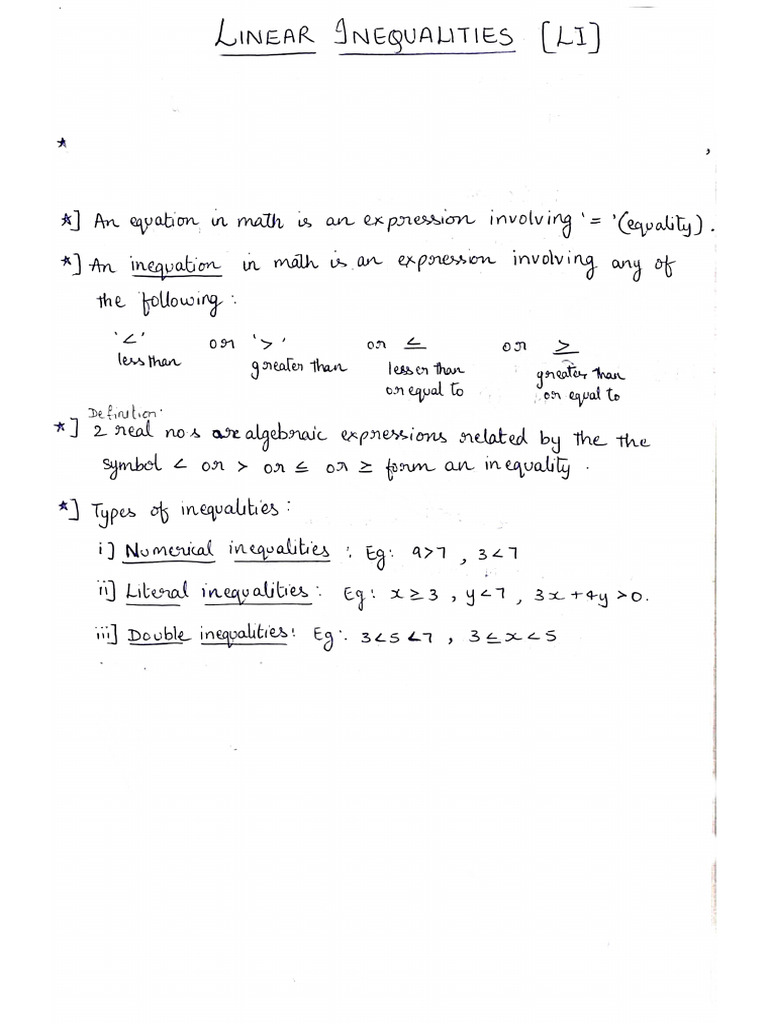 LINEAR INEQUALITIES [LI]
*
*] An equation in math is an expression involving '=' (equality).
*] An inequation in math is an expression involving any of
the following:
'<' or '>' or ≤ or ≥
less than greater than lesser than greater than
or equal to or equal to
Definition:
*] 2 real nos are algebraic expressions related by the the
symbol < or > or ≤ or ≥ form an inequality.
*] Types of inequalities:
i] Numerical inequalities: Eg: 9>7, 3<7
ii] Literal inequalities: Eg: x≥3, y<7, 3x+4y>0.
iii] Double inequalities: Eg: 3<5<7, 3≤x<5